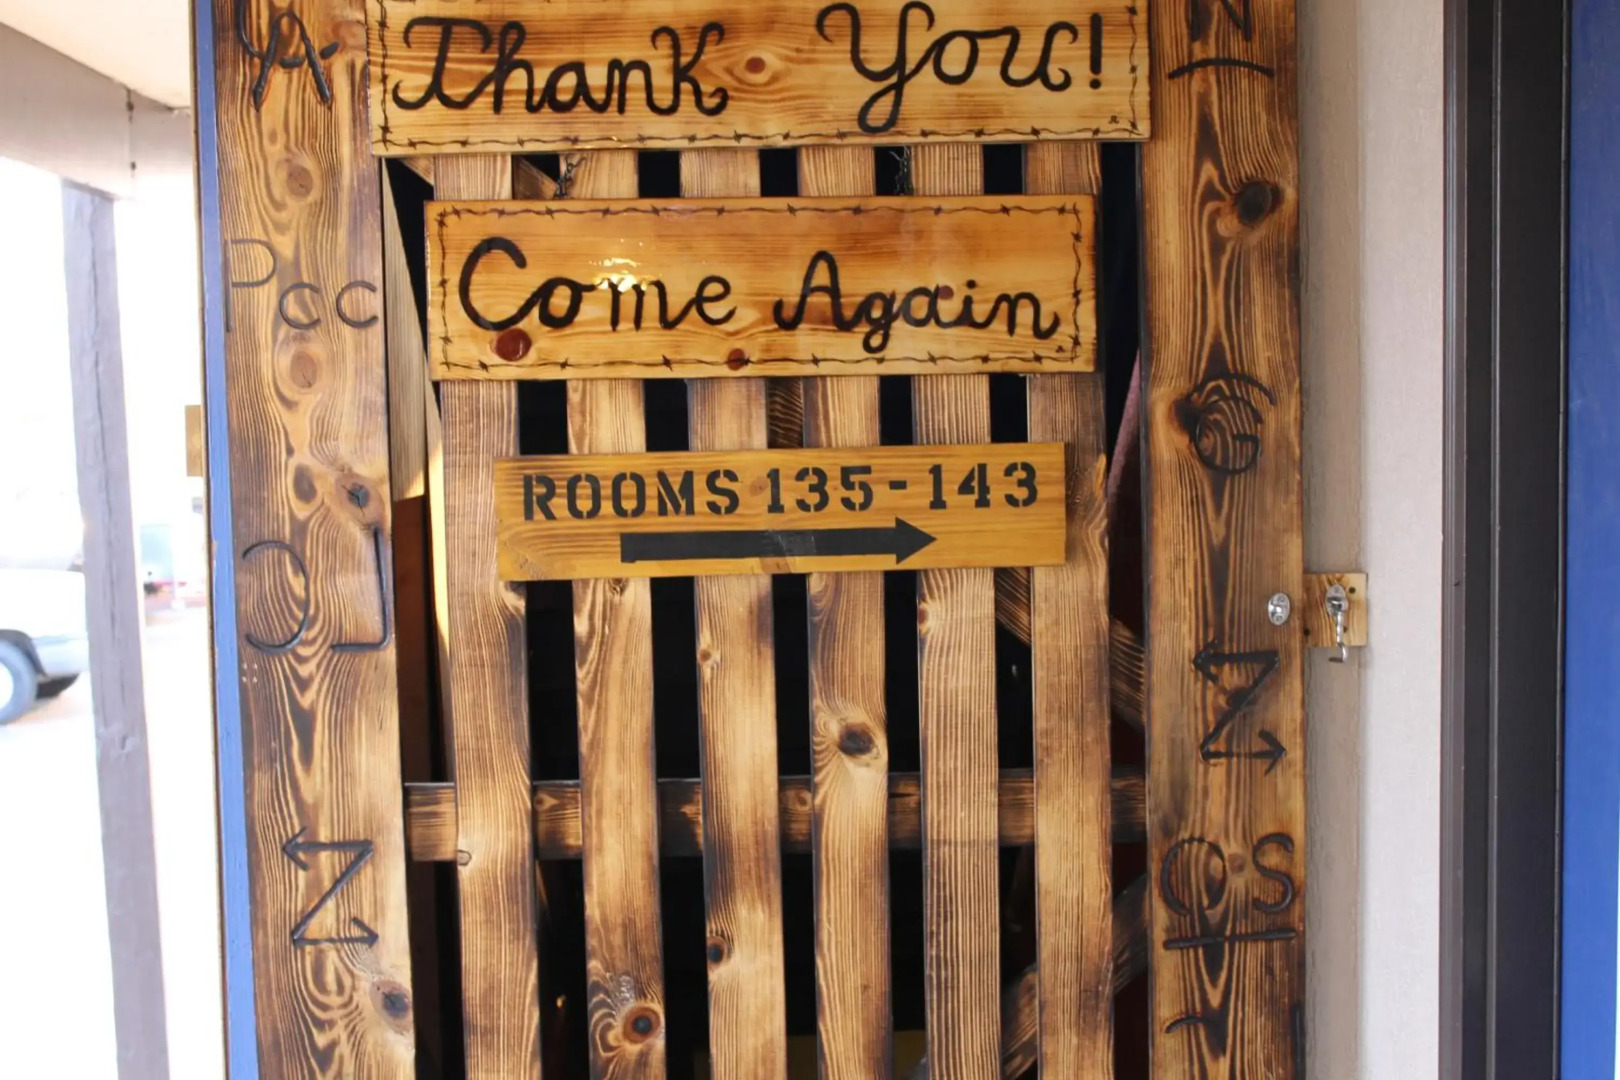 Thank You!
Come Again
ROOMS 135-143
Pcc
CS